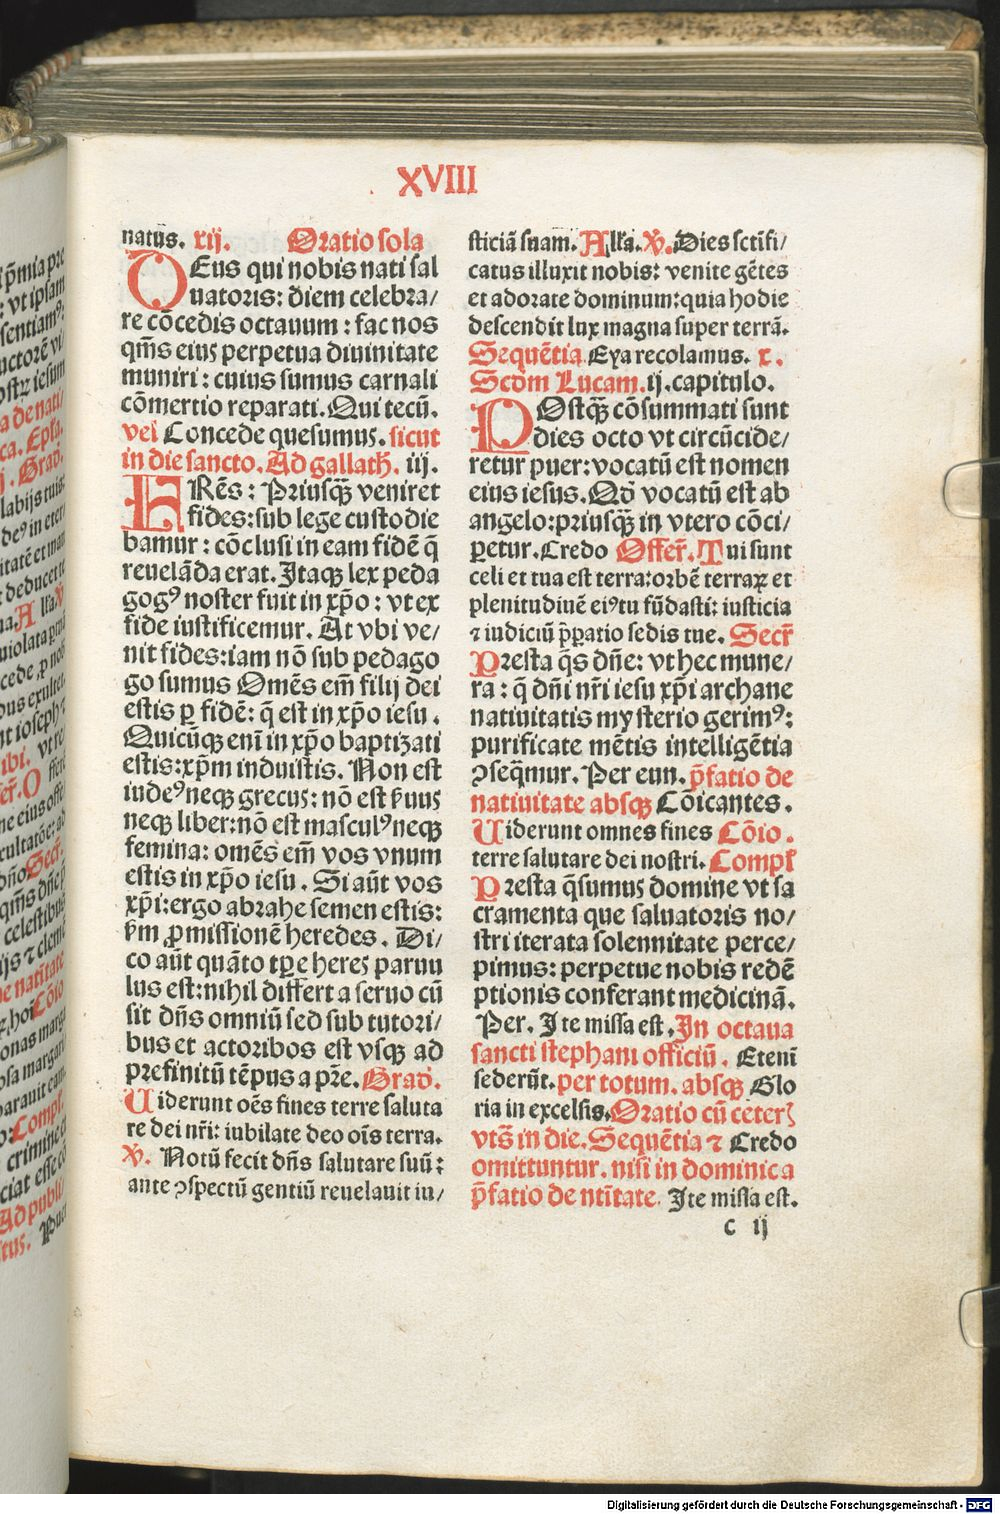 XVIII
natus. xij. Oratio sola
DEus qui nobis nati sal
uatoris: diem celebra/
re cōcedis octauum : fac nos
qm̄s eius perpetua diuinitate
muniri : cuius sumus carnali
cōmertio reparati. Qui tecū.
vel Concede quesumus. sicut
in die sancto. Ad gallath̄. iij.
FRēs : Priusqȝ veniret
fides: sub lege custodie
bamur : cōclusi in eam fidē q̄
reuelāda erat. Itaqȝ lex peda
gogꝰ noster fuit in xp̄o : vt ex
fide iustificemur. At vbi ve/
nit fides: iam nō sub pedago
go sumus Omēs em̄ filij dei
estis ꝑ fidē: q̄ est in xp̄o iesu .
Quicūqȝ eni in xp̄o baptizati
estis: xp̄m induistis. Non est
iudeꝰ neqȝ grecus: nō est ẜuus
neqȝ liber: nō est masculꝰ neqȝ
femina: omēs em̄ vos vnum
estis in xp̄o iesu . Si aūt vos
xp̄i: ergo abrahe semen estis:
ẜm ꝓmissionē heredes . Di/
co aūt quāto tꝑe heres paruu
lus est: nihil differt a seruo cū
sit dn̄s omniū sed sub tutori/
bus et actoribos est vsqȝ ad
prefinitū tēpus a pr̄e. Grad̄.
Uiderunt oēs fines terre saluta
re dei nr̄i: iubilate deo oīs terra.
℣. Notū fecit dn̄s salutare suū:
ante ↄspectū gentiū reuelauit iu/
sticiā suam. All'a. ℣. Dies sctīfi/
catus illuxit nobis: venite gētes
et adorate dominum: quia hodie
descendit lux magna super terrā.
Sequētia Eya recolamus. x.
Scdm Lucam. ij. capitulo.
POstqȝ cōsummati sunt
dies octo vt circūcide/
retur puer: vocatū est nomen
eius iesus. Qd̄ vocatū est ab
angelo: priusqȝ in vtero cōci/
ꝑetur. Credo Offer̄. Tui sunt
celi et tua est terra: orbē terraꝝ et
plenitudinē eiꝰ tu fūdasti: iusticia
⁊ iudiciū p̄ꝑatio sedis tue. Secr̄
Presta q̄s dn̄e: vt hec mune/
ra : q̄ dn̄i nr̄i iesu xp̄i archane
natiuitatis mysterio gerimꝰ:
purificate mētis intelligētia
ↄseq̄mur. Per eun. p̄fatio de
natiuitate absqȝ Cōicantes .
Uiderunt omnes fines Cōio .
terre salutare dei nostri. Compl̄
Presta q̄sumus domine vt sa
cramenta que saluatoris no/
stri iterata solennitate perce/
pimus: perpetue nobis redē
ptionis conferant medicinā.
Per. Ite missa est . In octaua
sancti stephani officiū . Eteni
sederūt. per totum. absqȝ Glo
ria in excelsis. Oratio cū ceteris
vts̄ in die. Sequētia ⁊ Credo
omittuntur. nisi in dominica
p̄fatio de ntītate. Ite missa est.
c ij
Digitalisierung gefördert durch die Deutsche Forschungsgemeinschaft - DFG